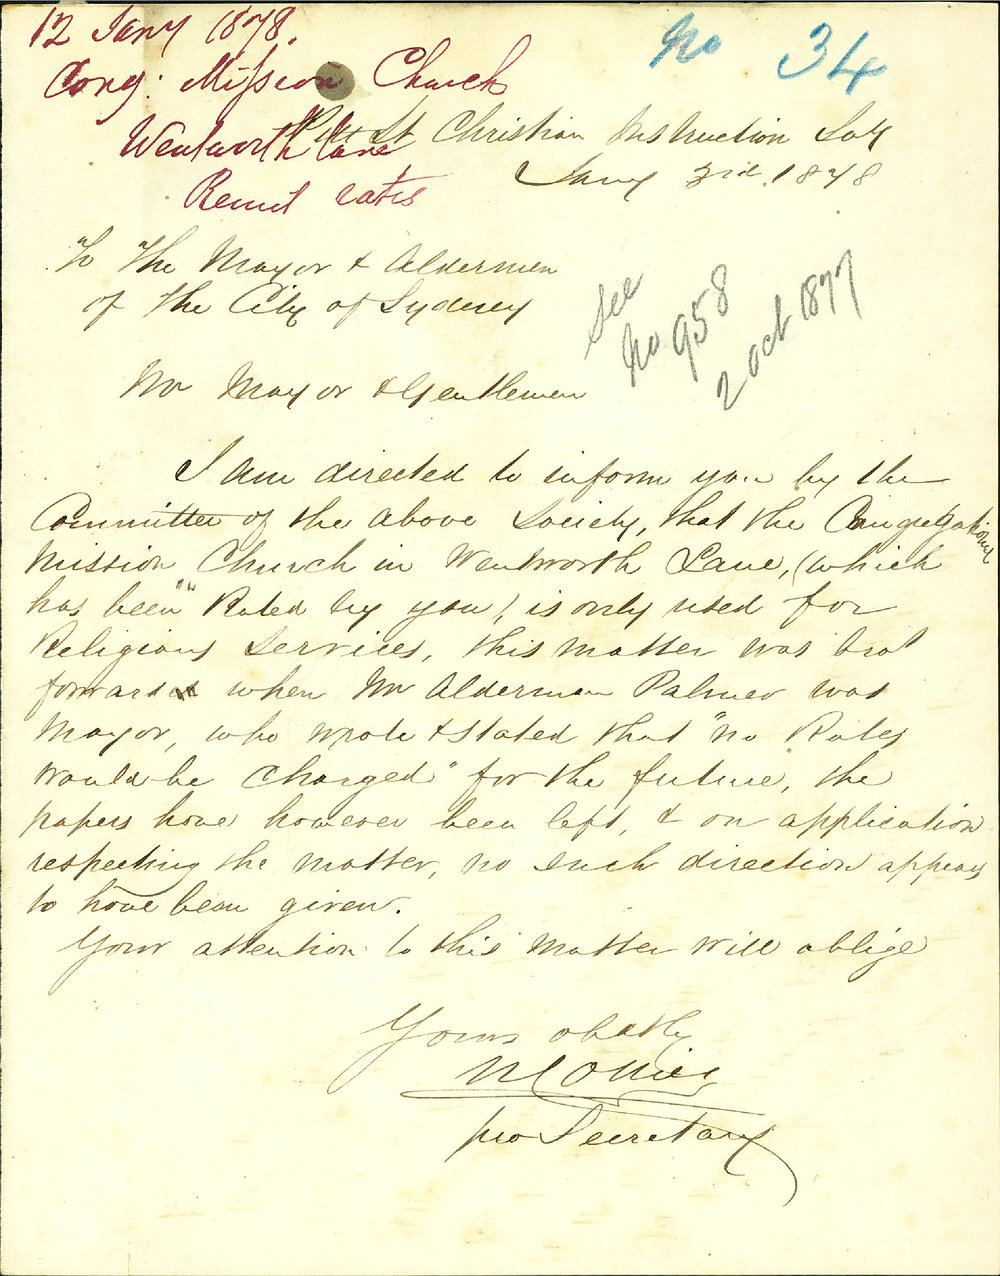 12 Jany 1878.
No 34
Cong: Mission Church
Wentworth Lane
Remit rates
Pitt St Christian Instruction Soy
Jany 3rd. 1878
To The Mayor & Aldermen
of the City of Sydney
See
No 958
2 Oct 1877
Mr Mayor & Gentlemen
I am directed to inform you by the
Committee of the above Society, that the Congregational
Mission Church in Wentworth Lane, (which
has been "" Rated by you) is only used for
Religious Services, this matter was brot
forward when Mr Alderman Palmer was
Mayor, who wrote & stated that "no Rates
would be charged" for the future, the
papers have however been left, & on application
respecting the matter, no such direction appears
to have been given.
Your attention to this matter will oblige
Yours obdtly
pro Secretary